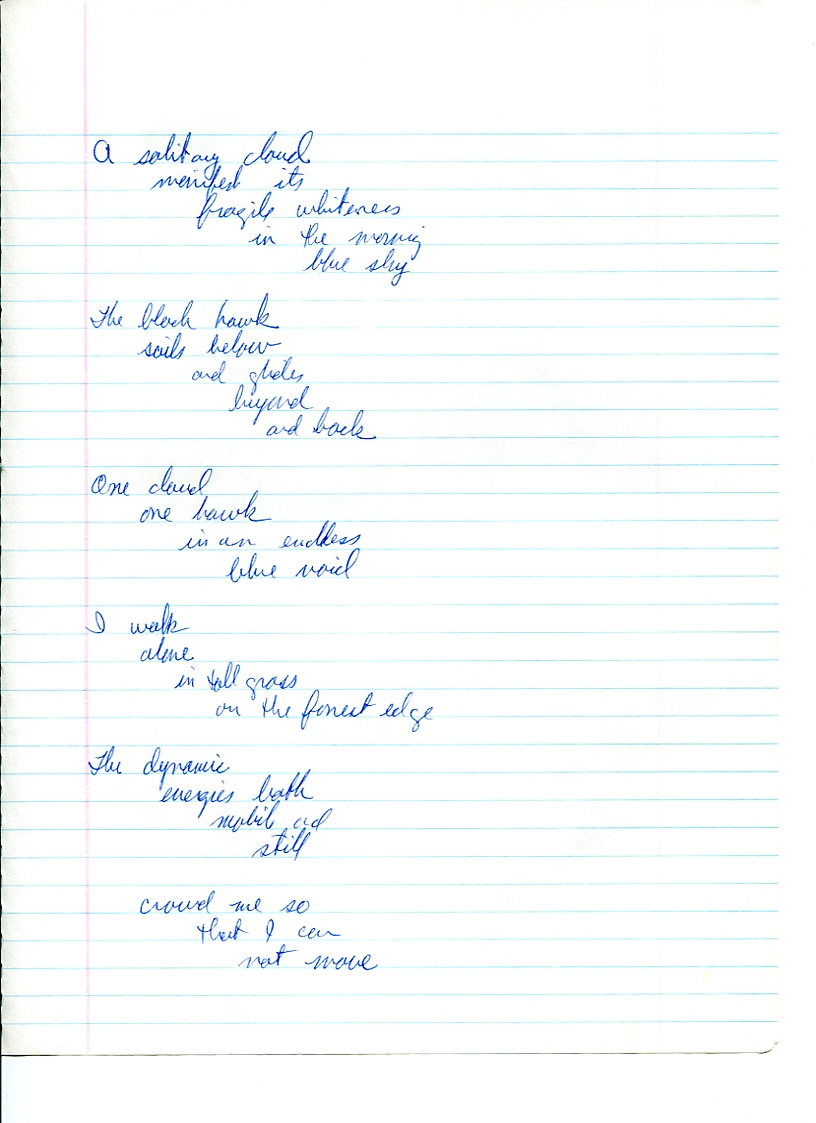 A solitary cloud
manifest its
fragile whiteness
in the morning
blue sky
The black hawk
sails below
and glides
beyond
and back
One cloud
one hawk
in an endless
blue void
I walk
alone
in tall grass
on the forrest edge
The dynamic
energies both
mobil and
still
crowd me so
that I can
not move